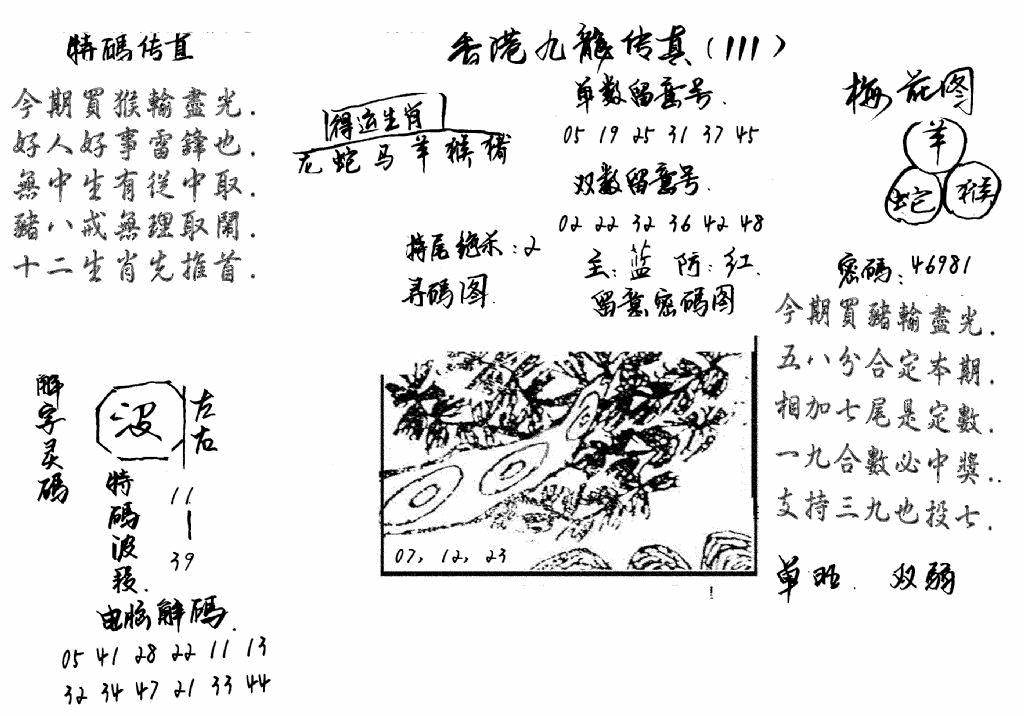 香港九龍传真(111)
特碼传真
今期買猴輸盡光.
好人好事雷鋒也.
無中生有從中取.
豬八戒無理取鬧.
十二生肖先推首.
得运生肖
龙蛇马羊猴猪
特尾绝杀:2
寻码图.
单数留意号.
05 19 25 31 37 45
双数留意号.
02 22 32 36 42 48
主:蓝 防:红.
留意密码图
07, 12, 23
梅花图
羊
蛇
猴
密码:46981
今期買豬輸盡光.
五八分合定本期.
相加七尾是定數.
一九合數必中獎..
支持三九也投七.
单旺. 双弱
解字灵碼
波
左右
特碼波段.
11
|
39
电脑解碼.
05 41 28 22 11 13
32 34 47 21 33 44